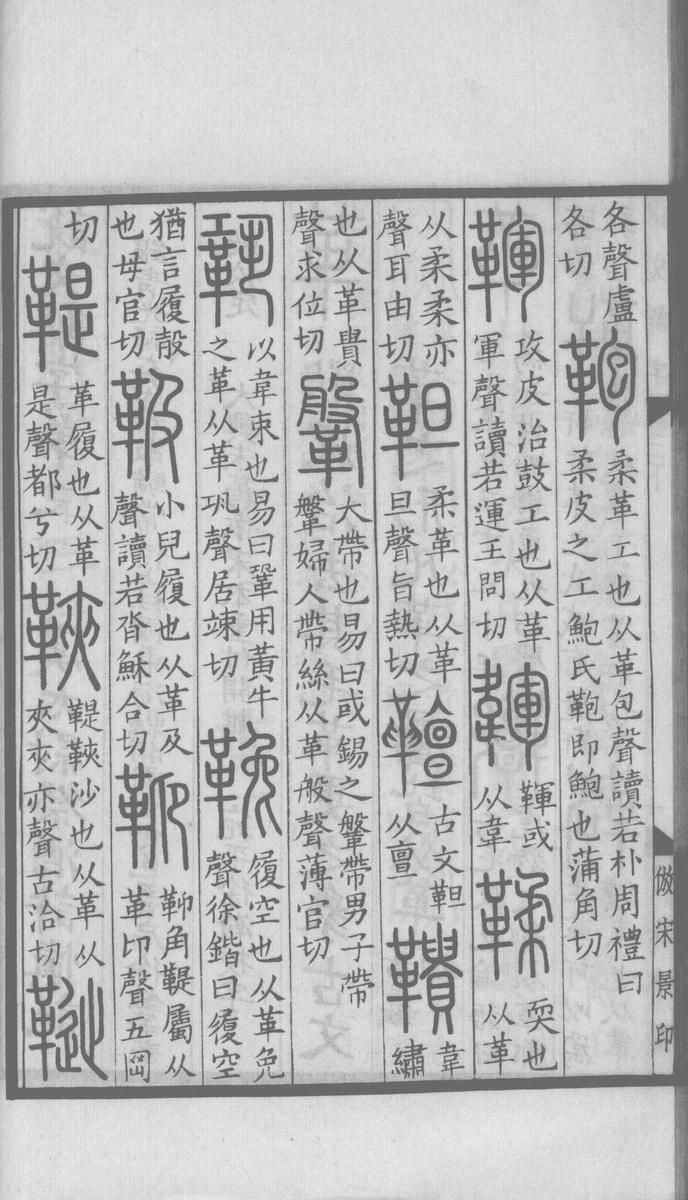 各聲盧
各切
鞄
柔革工也从革包聲讀若朴周禮曰
柔皮之工鮑氏鞄即鮑也蒲角切
䩵
攻皮治鼓工也从革
軍聲讀若運王問切
韗
䩵或
从韋
鞣
耎也
从革
从柔柔亦
聲耳由切
靼
柔革也从革
旦聲旨熱切
古文靼
从亶
鞼
韋
繡
也从革貴
聲求位切
鞶
大帶也易曰或錫之鞶帶男子帶
鞶婦人帶絲从革般聲薄官切
鞏
以韋束也易曰鞏用黃牛
之革从革巩聲居竦切
鞔
履空也从革免
聲徐鍇曰履空
猶言履殻
也母官切
靸
小兒履也从革及
聲讀若沓穌合切
䩕
䩕角鞮屬从
革卬聲五岡
切
鞮
革履也从革
是聲都兮切
䩡
鞮䩡沙也从革从
夾夾亦聲古洽切
倣宋景印